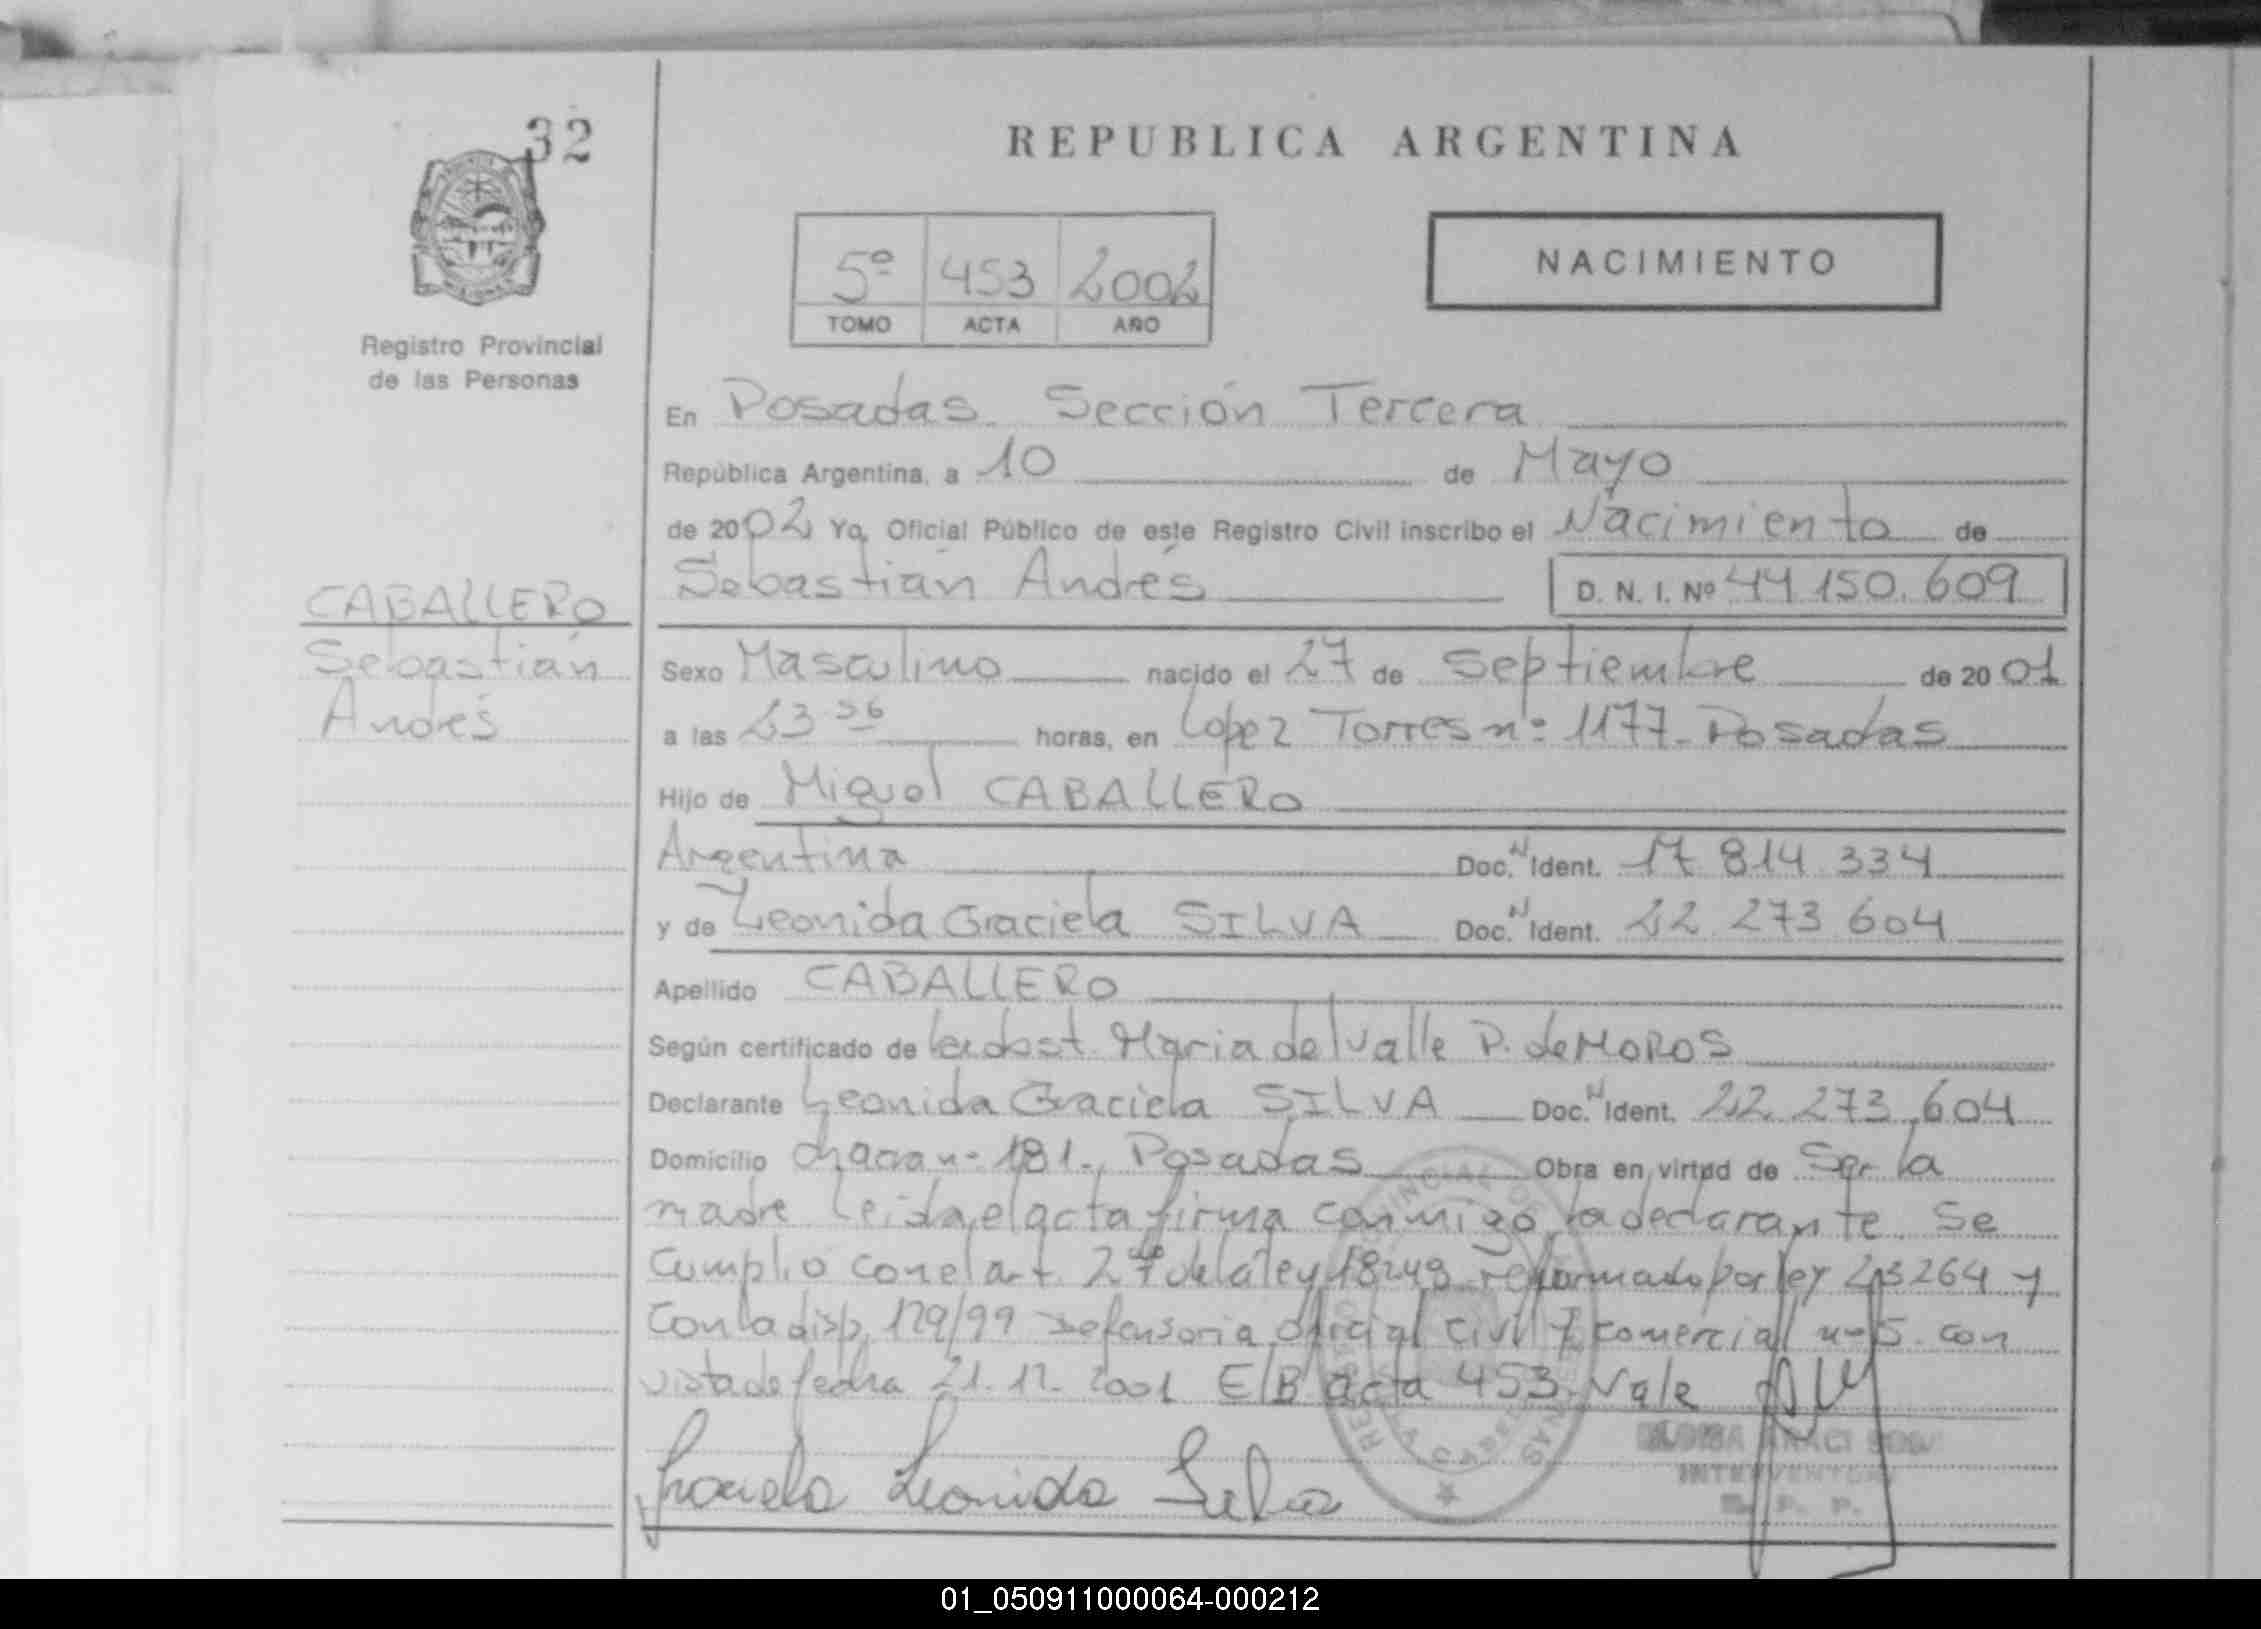 32
REPUBLICA ARGENTINA
5º 453 2002
TOMO ACTA AÑO
NACIMIENTO
Registro Provincial
de las Personas
En Posadas. Sección Tercera
República Argentina, a 10 de Mayo
de 2002 Yo, Oficial Público de este Registro Civil inscribo el Nacimiento de
Sebastián Andrés D. N. I. Nº 44.150.609
CABALLERO
Sebastián
Andrés
Sexo Masculino nacido el 27 de Septiembre de 2001
a las 23 36 horas, en López Torres nº 1177 - Posadas
Hijo de Miguel CABALLERO
Argentina Doc. N Ident. 17 814 334
y de Leonida Graciela SILVA Doc. N Ident. 22 273 604
Apellido CABALLERO
Según certificado de María del Valle P. de MOROS
Declarante Leonida Graciela SILVA Doc. N Ident. 22 273 604
Domicilio chacra nº 181., Posadas Obra en virtud de Ser la
madre Leída el acta firma conmigo la declarante. Se
cumplió con el art. 2º de la ley 18248 reformado por ley 23264 y
con la disp. 129/99 Defensoria oficial civil y comercial nº 5. con
vista de fecha 21. 12. 2001 E/B acta 453. Vale
Graciela Leonida Silva
INTERVENTORA
R. P. P.
01_050911000064-000212